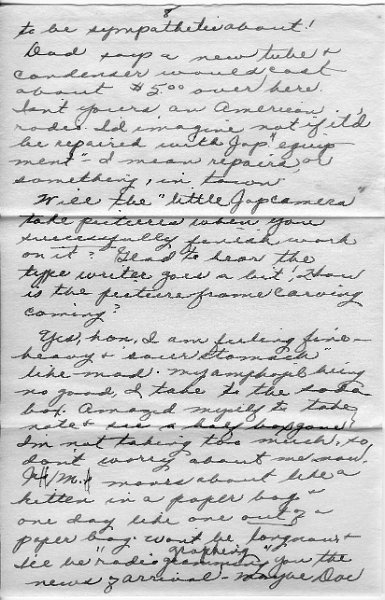 8
to be sympathetic about!
Dad says a new tube &
condenser would cost
about $5.00 over here.
Isn't yours an American
radio. I'd imagine not if it'd
be repaired with Jap. "equip
ment" - I mean repairs or
something, in town
Will the "little Jap camera"
take pictures when you
successfully finish work
on it? Glad to hear the
type writer goes a bit! How
is the picture frame carving
coming?
Yes, hon, I am feeling fine -
heavy & sour stomach
like mad. my amphojel being
no good, I take to the soda
box. Amazed myself to take
note & see a half box gone!
I'm not taking too much, so
don't worry about me now.
M. moves about like a
kitten in a paper bag -
one day like one out of a
paper bag. wont be long now &
I'll be "radiographing
gramming you the
news of arrival - maybe Doc